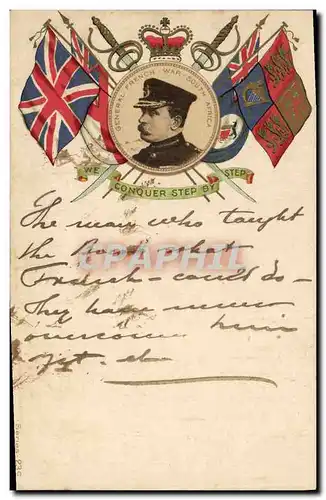 GENERAL FRENCH · WAR · SOUTH AFRICA
WE CONQUER STEP BY STEP
The man who taught
the Boers what
French – could do –
They have never
overcome him
yet – eh
CPHPOST.COM
Series 239